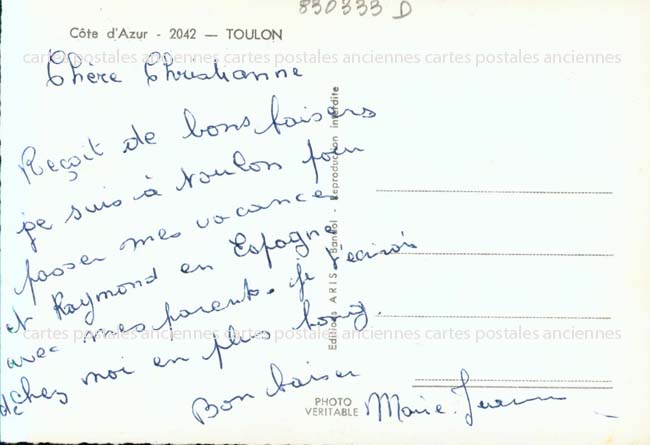 830333 D
Côte d'Azur - 2042 — TOULON
cartes postales anciennes cartes postales anciennes cartes postales anciennes
Chère Christianne
Reçoit de bons baisers
je suis à Toulon pour
passer mes vacance
et Raymond en Espagne
avec mes parents. je t'écirai
de chez moi en plus long.
Bon baiser
Marie
Editions ARIS - Bandol - Reproduction interdite
PHOTO
VERITABLE
cartes postales anciennes cartes postales anciennes cartes postales anciennes